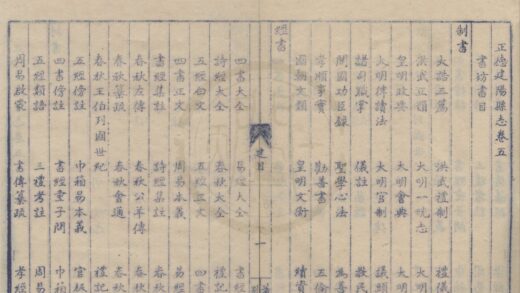 正德建陽縣志卷五
書坊書目
制書
大誥三篇 洪武禮制 禮儀
洪武正韻 大明一統志 大明
皇明政要 大明會典 大明
大明律讀法 大明官制 議頭
諸司職掌 儀註 教民
開國功臣錄 聖學心法 為善
孝順事實 勸善書 五倫
國朝文類 皇明文衡 續資
經書
建目
一
四書大全 易經大全 書經
詩經大全 春秋大全 禮記
五經白文 五經正文 四書
四書正文 周易本義 易經
書經集註 詩經集註 禮記
春秋左傳 春秋公羊傳 春秋
春秋纂疏 春秋會通 禮記
春秋王伯列國世紀 巾箱易本義 官板
四書傍註 書經童子問 巾箱
五經類語 三禮考註 周易
周易啟蒙 書傳纂疏 孝經